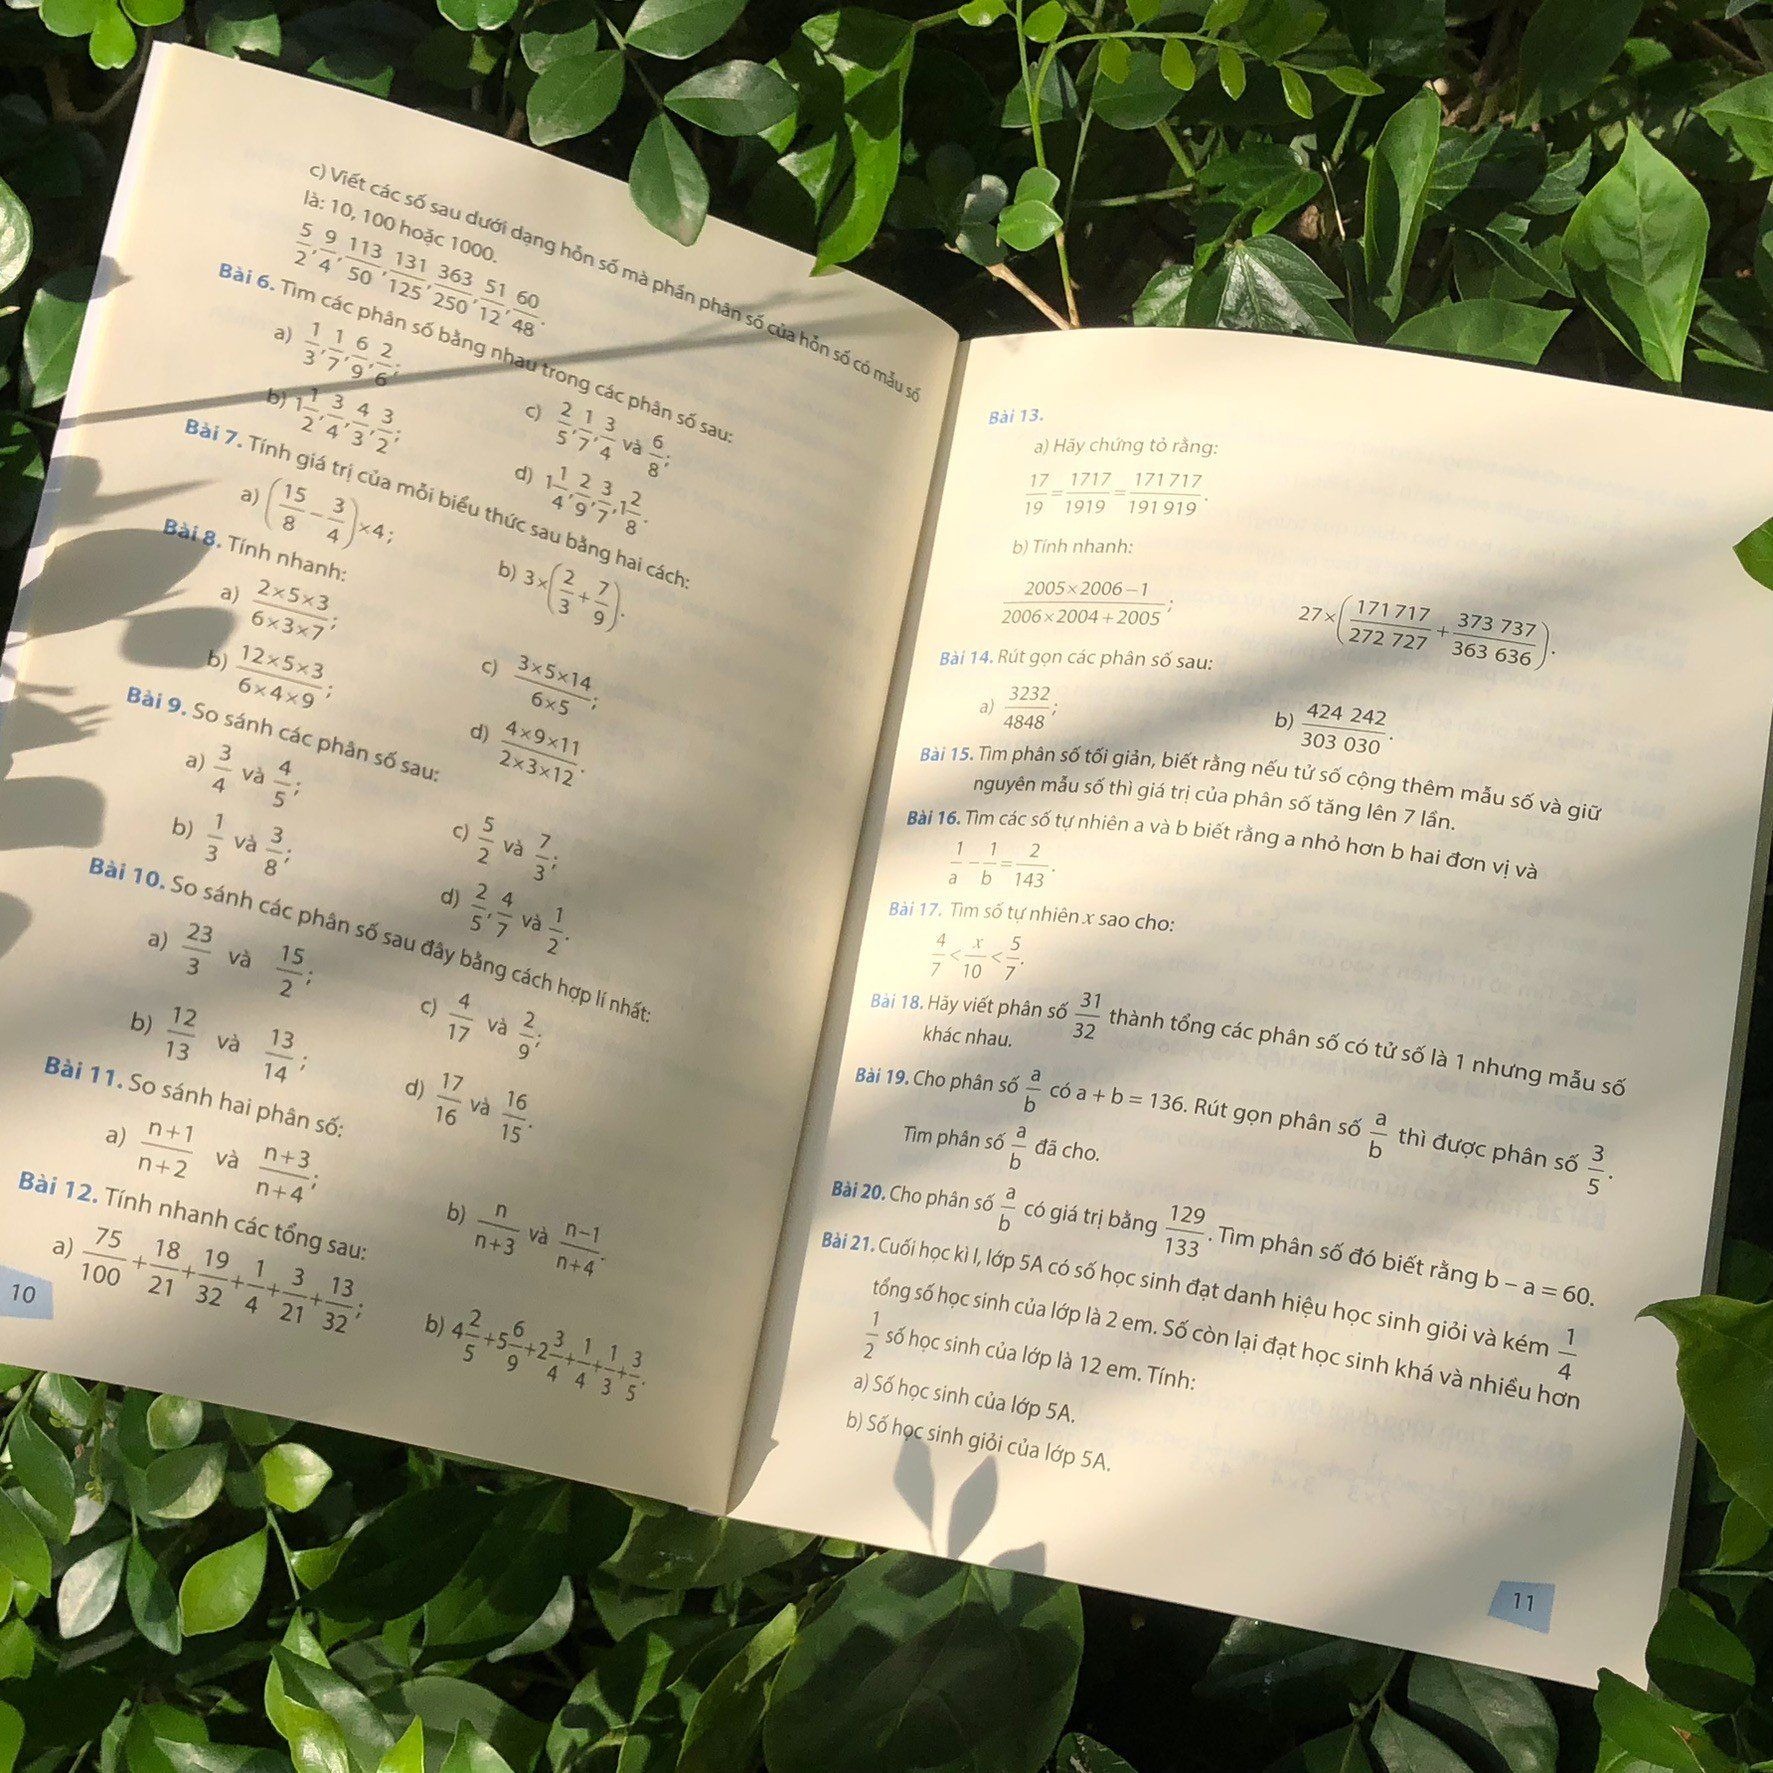 c) Viết các số sau dưới dạng hỗn số mà phần phân số của hỗn số có mẫu số
là: 10, 100 hoặc 1000.
5/2, 9/4, 113/50, 131/125, 363/250, 51/12, 60/48.
Bài 6. Tìm các phân số bằng nhau trong các phân số sau:
a) 1/3, 1/7, 6/9, 2/6;
c) 2/5, 1/7, 3/4 và 6/8;
b) 1 1/2, 3/4, 4/3, 3/2;
d) 1 1/4, 2/9, 3/7, 1 2/8.
Bài 7. Tính giá trị của mỗi biểu thức sau bằng hai cách:
a) (15/8 − 3/4) × 4;
b) 3 × (2/3 + 7/9).
Bài 8. Tính nhanh:
a) 2×5×3 / 6×3×7;
c) 3×5×14 / 6×5;
b) 12×5×3 / 6×4×9;
d) 4×9×11 / 2×3×12.
Bài 9. So sánh các phân số sau:
a) 3/4 và 4/5;
c) 5/2 và 7/3;
b) 1/3 và 3/8;
d) 2/5, 4/7 và 1/2.
Bài 10. So sánh các phân số sau đây bằng cách hợp lí nhất:
a) 23/3 và 15/2;
c) 4/17 và 2/9;
b) 12/13 và 13/14;
d) 17/16 và 16/15.
Bài 11. So sánh hai phân số:
a) n+1/n+2 và n+3/n+4;
b) n/n+3 và n−1/n+4.
Bài 12. Tính nhanh các tổng sau:
a) 75/100 + 18/21 + 19/32 + 1/4 + 3/21 + 13/32;
b) 4 2/5 + 5 6/9 + 2 3/4 + 1/4 + 1/3 + 3/5.
10
Bài 13.
a) Hãy chứng tỏ rằng:
17/19 = 1717/1919 = 171 717/191 919.
b) Tính nhanh:
2005×2006−1 / 2006×2004+2005;
27 × (171 717/272 727 + 373 737/363 636).
Bài 14. Rút gọn các phân số sau:
a) 3232/4848;
b) 424 242/303 030.
Bài 15. Tìm phân số tối giản, biết rằng nếu tử số cộng thêm mẫu số và giữ
nguyên mẫu số thì giá trị của phân số tăng lên 7 lần.
Bài 16. Tìm các số tự nhiên a và b biết rằng a nhỏ hơn b hai đơn vị và
1/a − 1/b = 2/143.
Bài 17. Tìm số tự nhiên x sao cho:
4/7 < x/10 < 5/7.
Bài 18. Hãy viết phân số 31/32 thành tổng các phân số có tử số là 1 nhưng mẫu số
khác nhau.
Bài 19. Cho phân số a/b có a + b = 136. Rút gọn phân số a/b thì được phân số 3/5.
Tìm phân số a/b đã cho.
Bài 20. Cho phân số a/b có giá trị bằng 129/133. Tìm phân số đó biết rằng b − a = 60.
Bài 21. Cuối học kì I, lớp 5A có số học sinh đạt danh hiệu học sinh giỏi và kém 1/4
tổng số học sinh của lớp là 2 em. Số còn lại đạt học sinh khá và nhiều hơn
1/2 số học sinh của lớp là 12 em. Tính:
a) Số học sinh của lớp 5A.
b) Số học sinh giỏi của lớp 5A.
11